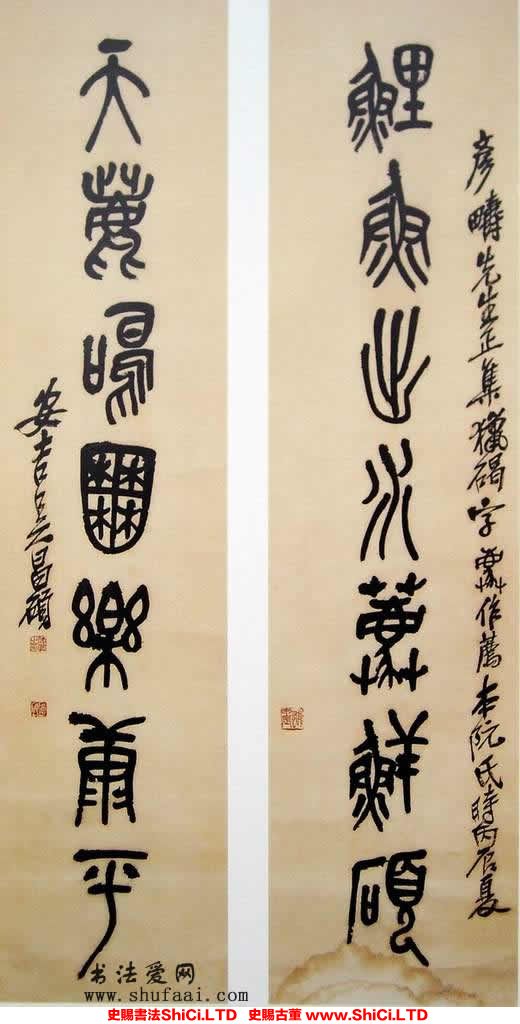 鯉魚出水薦鮮碩
彥疇先生正集獵碣字作薦本阮氏時丙辰夏
天鹿鳴囿樂康平
安吉吳昌碩
书法爱网
www.shufaai.com
史賜書法ShiCi.LTD 史賜古董 www.ShiCi.LTD